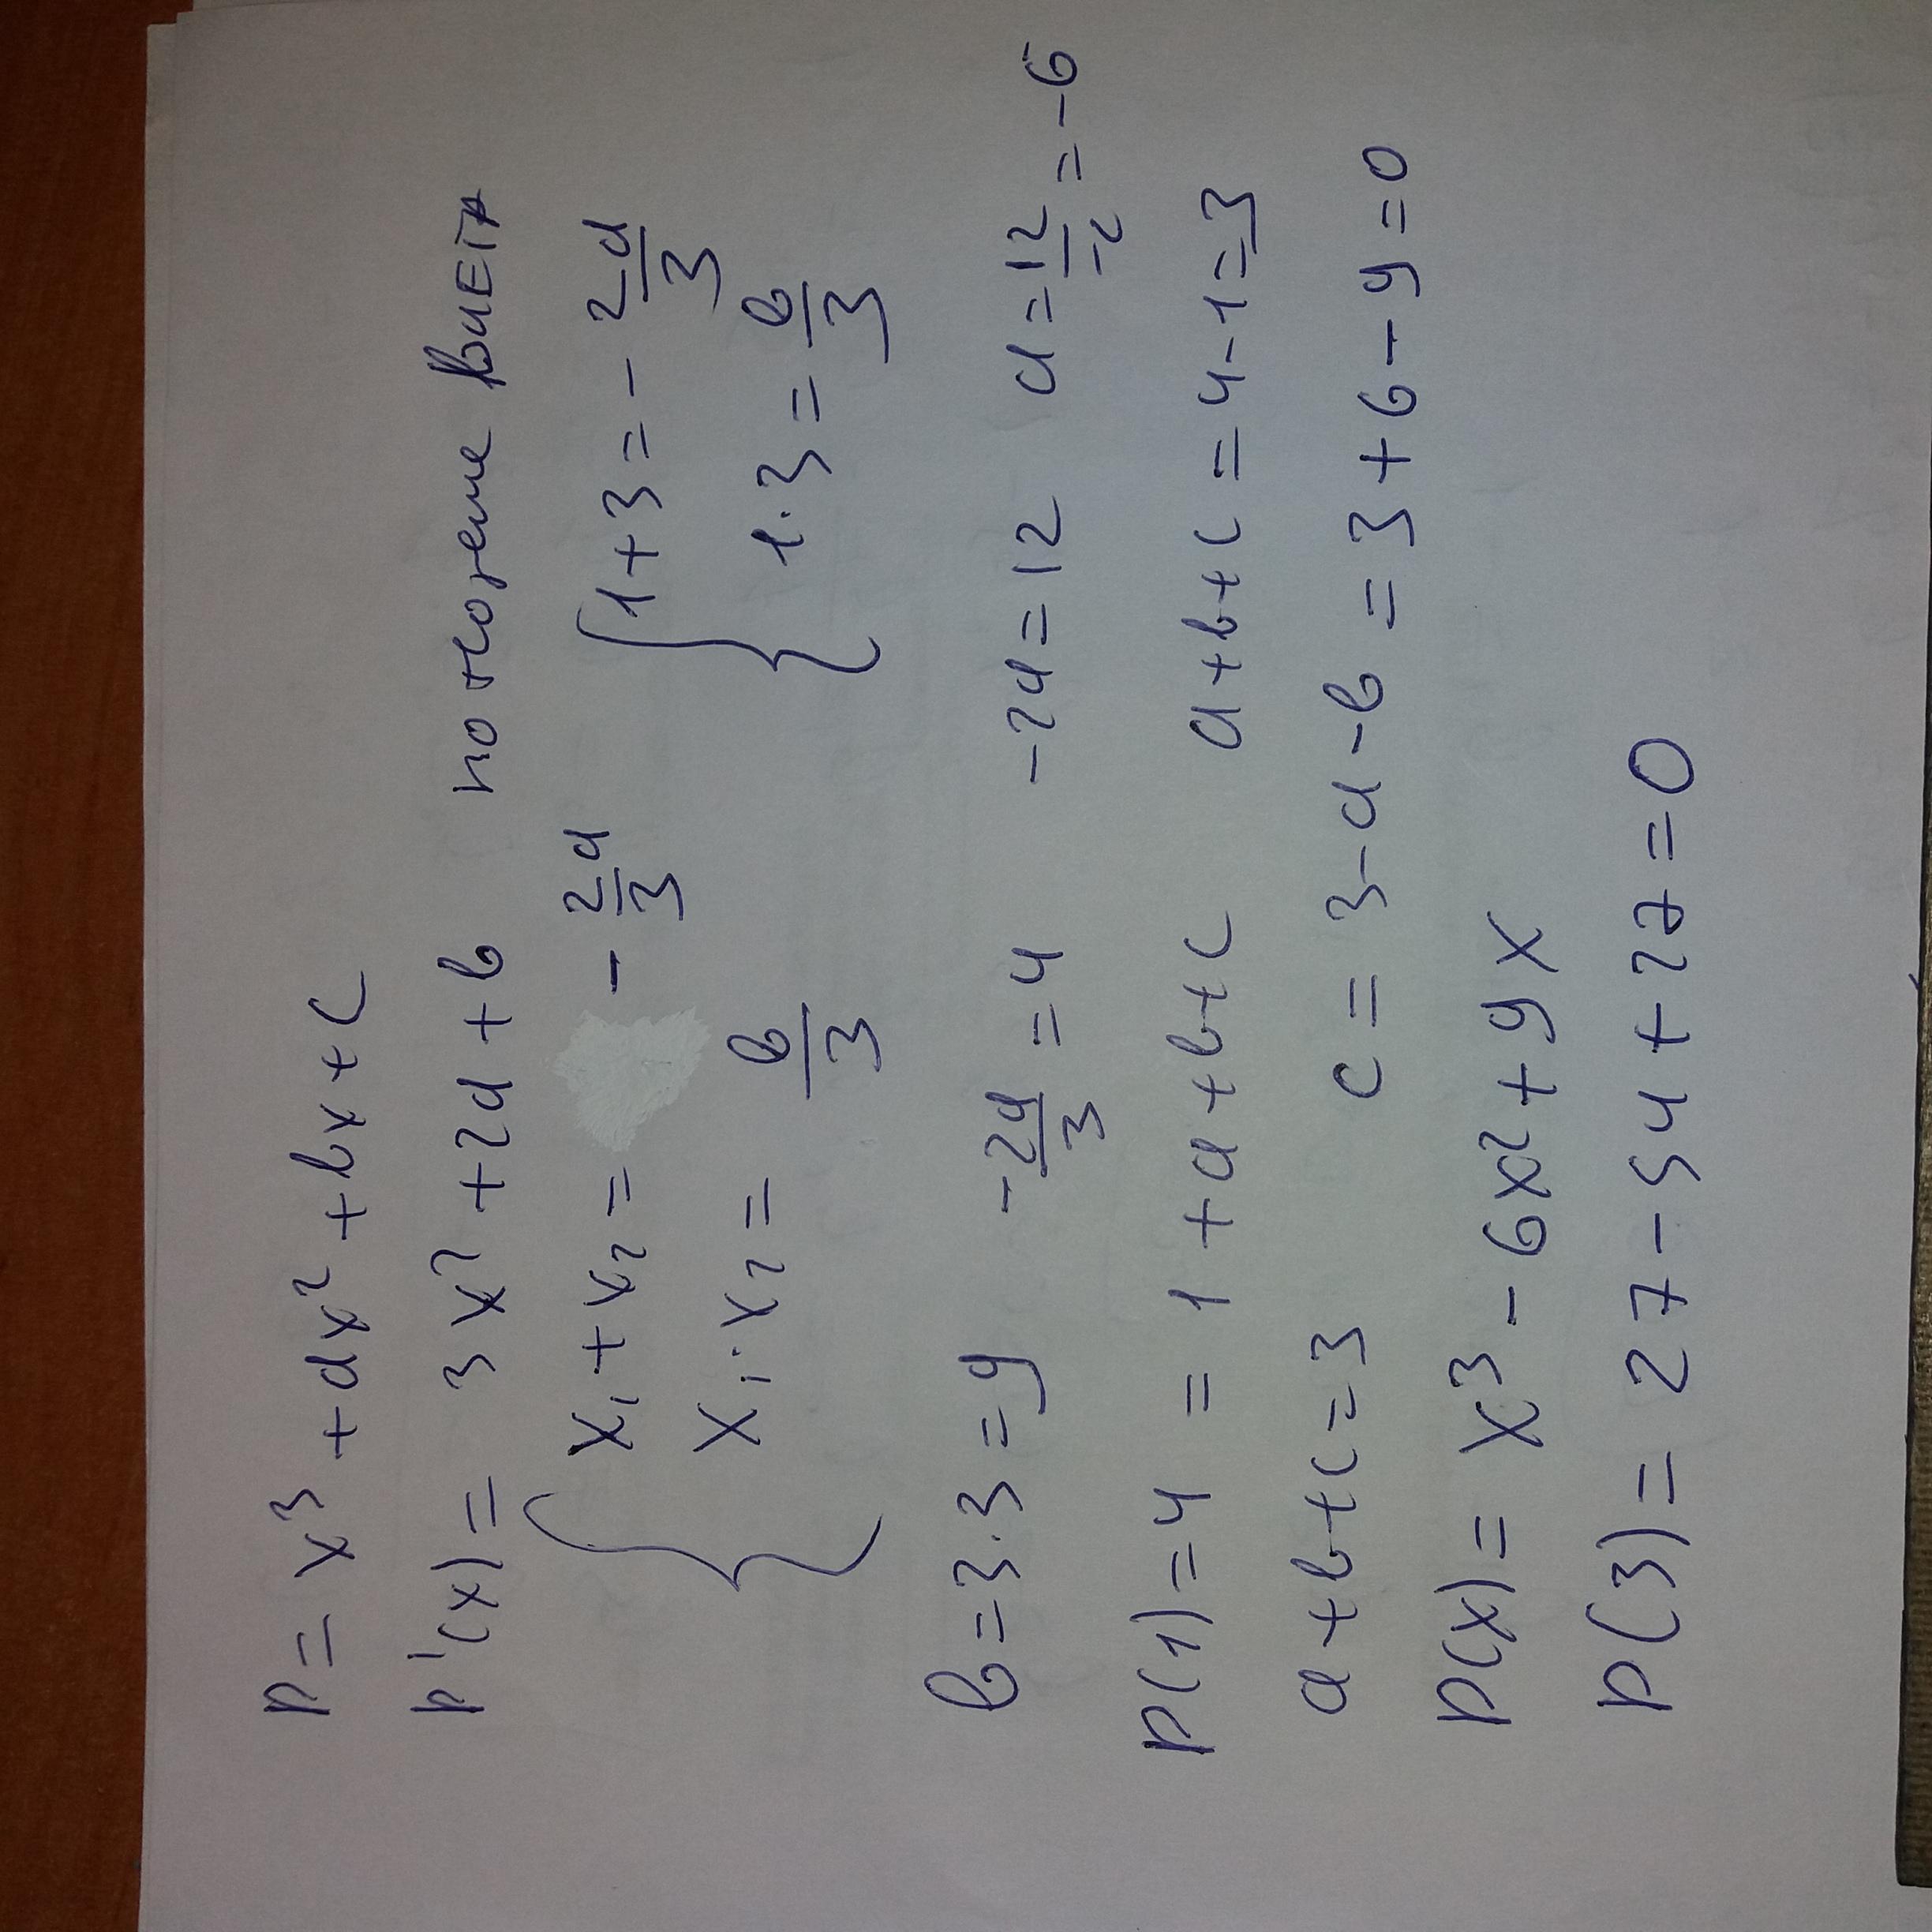 P = x³ + ax² + bx + c
P'(x) = 3x² + 2a + b по теореме Виета
{ x₁ + x₂ = - 2a/3 { 1+3 = - 2a/3
x₁ · x₂ = b/3 1·3 = b/3
b = 3·3 = 9 - 2a/3 = 4 -2a = 12 a = 12/-2 = -6
P(1) = 4 = 1 + a + b + c a + b + c = 4-1 = 3
a + b + c = 3 c = 3 - a - b = 3 + 6 - 9 = 0
P(x) = x³ - 6x² + 9x
P(3) = 27 - 54 + 27 = 0